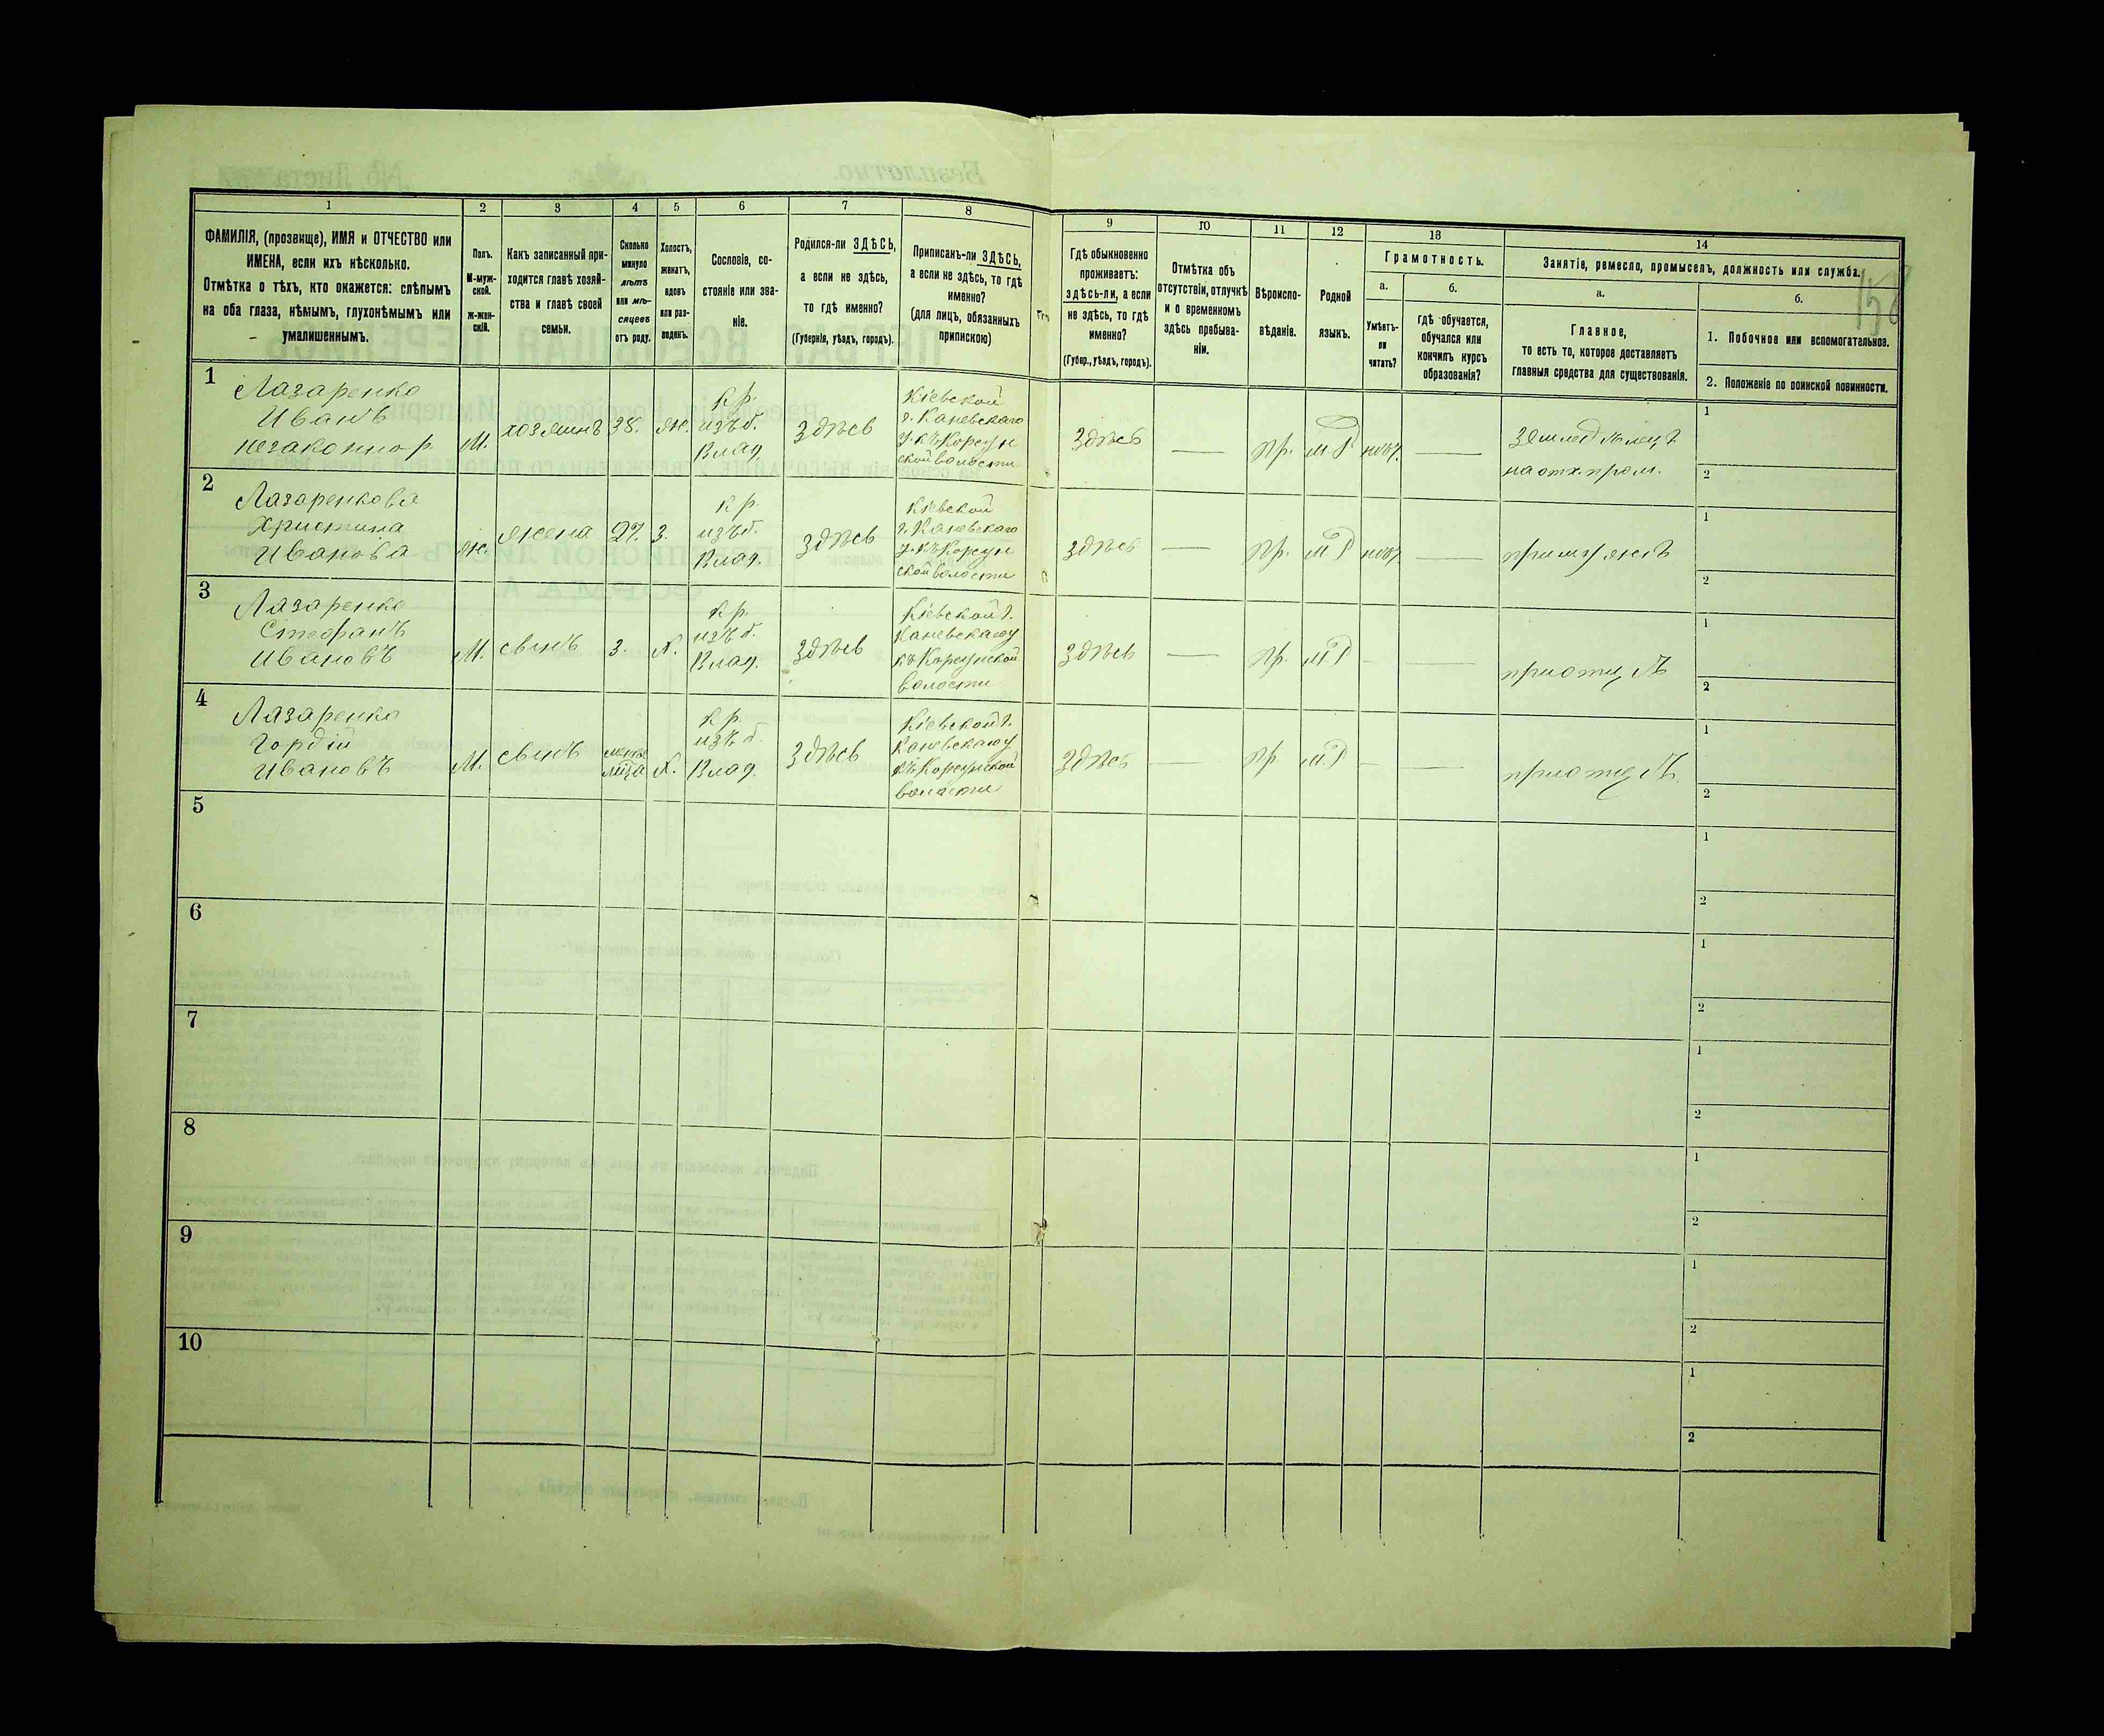 1 2 3 4 5 6 7 8 9 10 11 12 13 14
ФАМИЛІЯ, (прозвище), ИМЯ и ОТЧЕСТВО или
ИМЕНА, если ихъ нѣсколько.
Отмѣтка о тѣхъ, кто окажется: слѣпымъ
на оба глаза, нѣмымъ, глухонѣмымъ или
умалишеннымъ.
Полъ.
М-муж-
ской.
ж-жен-
скій.
Какъ записанный при-
ходится главѣ хозяй-
ства и главѣ своей
семьи.
Сколько
минуло
лѣтъ
или мѣ-
сяцевъ
отъ роду.
Холостъ,
женатъ,
вдовъ
или раз-
веденъ.
Сословіе, со-
стояніе или зва-
ніе.
Родился-ли ЗДѢСЬ,
а если не здѣсь,
то гдѣ именно?
(Губернія, уѣздъ, городъ).
Приписанъ-ли ЗДѢСЬ,
а если не здѣсь, то гдѣ
именно?
(для лицъ, обязанныхъ
припискою)
Гдѣ обыкновенно
проживаетъ:
здѣсь-ли, а если
не здѣсь, то гдѣ
именно?
(Губер., уѣздъ, городъ).
Отмѣтка объ
отсутствіи, отлучкѣ
и о временномъ
здѣсь пребыва-
ніи.
Вѣроиспо-
вѣданіе.
Родной
языкъ.
Грамотность.
а.
Умѣетъ-
ли
читать?
б.
Гдѣ обучается,
обучался или
кончилъ курсъ
образованія?
Занятіе, ремесло, промыселъ, должность или служба.
а.
Главное,
то есть то, которое доставляетъ
главныя средства для существованія.
б.
1. Побочное или вспомогательное.
2. Положеніе по воинской повинности.
158
1
Лазаренко
Иванъ
незаконнор.
М.
хозяинъ
38.
ж.
кр.
изъ б.
Влад.
Здѣсь
Кіевской
г. Каневскаго
у. къ Корсун
ской волости
Здѣсь
—
пр.
мр
нѣт.
—
земледѣлецъ
на отх. пром.
1
2
2
Лазаренкова
Христина
Иванова
ж.
жена
27.
з.
кр.
изъ б.
Влад.
Здѣсь
Кіевской
г. Каневскаго
у. къ Корсун
ской волости
Здѣсь
—
пр.
мр
нѣт
—
при мужѣ
1
2
3
Лазаренко
Стефанъ
Ивановъ
М.
сынъ
3.
х.
кр.
изъ б.
Влад.
Здѣсь
Кіевской г.
Каневскаго у
къ Корсунской
волости
Здѣсь
—
пр.
мр
—
—
при отцѣ
1
2
4
Лазаренко
Гордій
Ивановъ
М.
сынъ
х.
кр.
изъ б.
Влад.
Здѣсь
Кіевской г.
Каневскаго у
къ Корсунской
волости
Здѣсь
—
пр.
мр
—
—
при отцѣ.
1
2
5
1
2
6
1
2
7
1
2
8
1
2
9
1
2
10
1
2